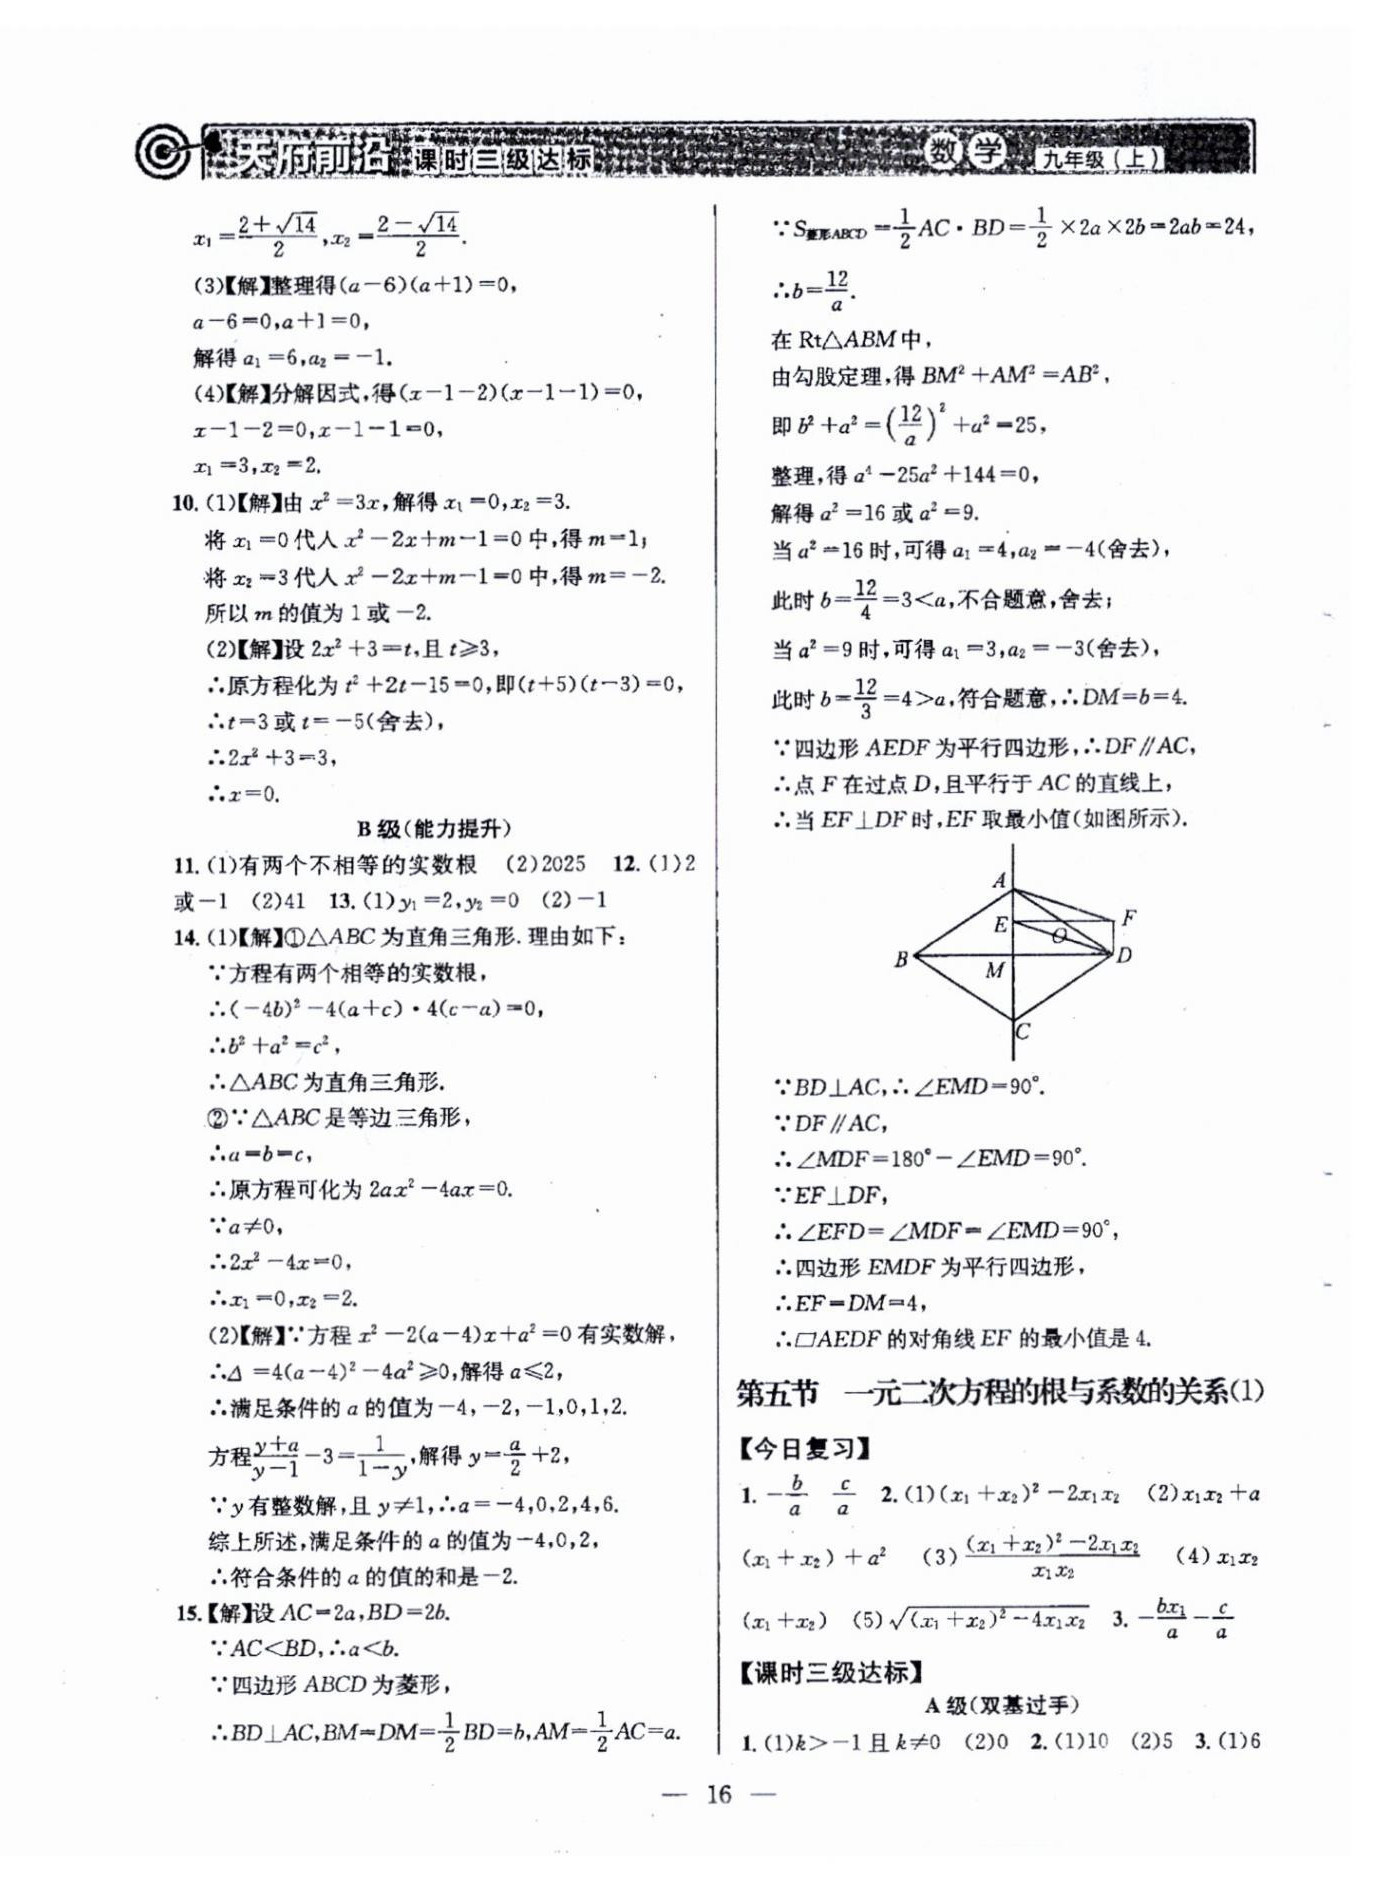 天府前沿 课时三级达标 数学 九年级(上)
x₁=(2+√14)/2,x₂=(2-√14)/2.
(3)【解】整理得(a-6)(a+1)=0,
a-6=0,a+1=0,
解得 a₁=6,a₂=-1.
(4)【解】分解因式,得(x-1-2)(x-1-1)=0,
x-1-2=0,x-1-1=0,
x₁=3,x₂=2.
10. (1)【解】由 x²=3x,解得 x₁=0,x₂=3.
将 x₁=0代人 x²-2x+m-1=0中,得 m=1;
将 x₂=3代人 x²-2x+m-1=0中,得 m=-2.
所以 m 的值为 1 或-2.
(2)【解】设 2x²+3=t,且 t⩾3,
∴原方程化为 t²+2t-15=0,即(t+5)(t-3)=0,
∴t=3或 t=-5(舍去),
∴2x²+3=3,
∴x=0.
B 级(能力提升)
11. (1)有两个不相等的实数根 (2)2025 12. (1)2
或-1 (2)41 13. (1)y₁=2,y₂=0 (2)-1
14. (1)【解】①△ABC 为直角三角形. 理由如下:
∵方程有两个相等的实数根,
∴(-4b)²-4(a+c)·4(c-a)=0,
∴b²+a²=c²,
∴△ABC 为直角三角形.
②∵△ABC 是等边三角形,
∴a=b=c,
∴原方程可化为 2ax²-4ax=0.
∵a≠0,
∴2x²-4x=0,
∴x₁=0,x₂=2.
(2)【解】∵方程 x²-2(a-4)x+a²=0有实数解,
∴Δ=4(a-4)²-4a²⩾0,解得 a⩽2,
∴满足条件的 a 的值为-4,-2,-1,0,1,2.
方程(y+a)/(y-1)-3=1/(1-y),解得 y=a/2+2,
∵y 有整数解,且 y≠1,∴a=-4,0,2,4,6.
综上所述,满足条件的 a 的值为-4,0,2,
∴符合条件的 a 的值的和是-2.
15.【解】设 AC=2a,BD=2b.
∵AC<BD,∴a<b.
∵四边形 ABCD 为菱形,
∴BD⊥AC,BM=DM=1/2BD=b,AM=1/2AC=a.
∵S菱形ABCD=1/2AC·BD=1/2×2a×2b=2ab=24,
∴b=12/a.
在 Rt△ABM 中,
由勾股定理,得 BM²+AM²=AB²,
即 b²+a²=(12/a)²+a²=25,
整理,得 a⁴-25a²+144=0,
解得 a²=16 或 a²=9.
当 a²=16 时,可得 a₁=4,a₂=-4(舍去),
此时 b=12/4=3<a,不合题意,舍去;
当 a²=9 时,可得 a₁=3,a₂=-3(舍去),
此时 b=12/3=4>a,符合题意,∴DM=b=4.
∵四边形 AEDF 为平行四边形,∴DF∥AC,
∴点 F 在过点 D,且平行于 AC 的直线上,
∴当 EF⊥DF 时,EF 取最小值(如图所示).
A
E
F
O
B
M
D
C
∵BD⊥AC,∴∠EMD=90°.
∵DF∥AC,
∴∠MDF=180°-∠EMD=90°.
∵EF⊥DF,
∴∠EFD=∠MDF=∠EMD=90°,
∴四边形 EMDF 为平行四边形,
∴EF=DM=4,
∴▱AEDF 的对角线 EF 的最小值是 4.
第五节 一元二次方程的根与系数的关系(1)
【今日复习】
1. -b/a c/a 2. (1)(x₁+x₂)²-2x₁x₂ (2)x₁x₂+a
(x₁+x₂)+a² (3)((x₁+x₂)²-2x₁x₂)/(x₁x₂) (4)x₁x₂
(x₁+x₂) (5)√((x₁+x₂)²-4x₁x₂) 3. -bx₁/a-c/a
【课时三级达标】
A 级(双基过手)
1. (1)k>-1且 k≠0 (2)0 2. (1)10 (2)5 3. (1)6
— 16 —